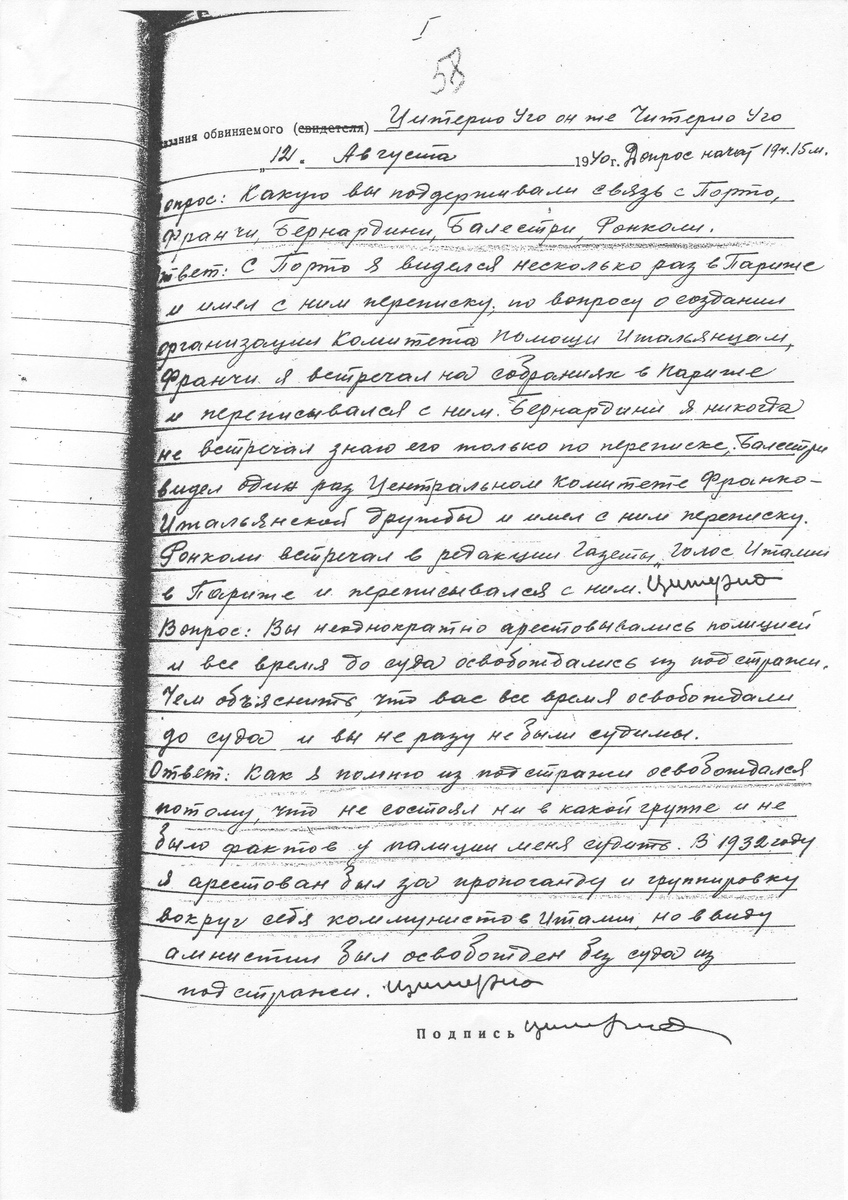 I
58
зания обвиняемого (свидетеля) Цитерио Уго он же Читерио Уго
„12“ Августа 1940 г. Допрос начат 19ч.15м.
опрос: Какую вы поддерживали связь с Порто,
Франчи, Бернардини, Балестри, Ронколи.
твет: С Порто я виделся несколько раз в Париже
и имел с ним переписку, по вопросу о создании
организации Комитета помощи Итальянцам,
Франчи я встречал на собраниях в Париже
и переписывался с ним. Бернардини я никогда
не встречал знаю его только по переписке, Балестри
видел один раз Центральном Комитете Франко-
Итальянской дружбы и имел с ним переписку.
Ронколи встречал в редакции Газеты „Голос Италии
в Париже и переписывался с ним. Цитерио
Вопрос: Вы неоднократно арестовывались полицией
и все время до суда освобождались из под стражи.
Чем объяснить, что вас все время освобождали
до суда и вы не разу не были судимы.
Ответ: Как я помню из под стражи освобождался
потому, что не состоял ни в какой группе и не
было фактов у палиции меня судить. В 1932 году
я арестован был за пропоганду и группировку
вокруг себя коммунистов Италии, но ввиду
амнистии был освобожден без суда из
под стражи. Цитерио
Подпись Цитерио